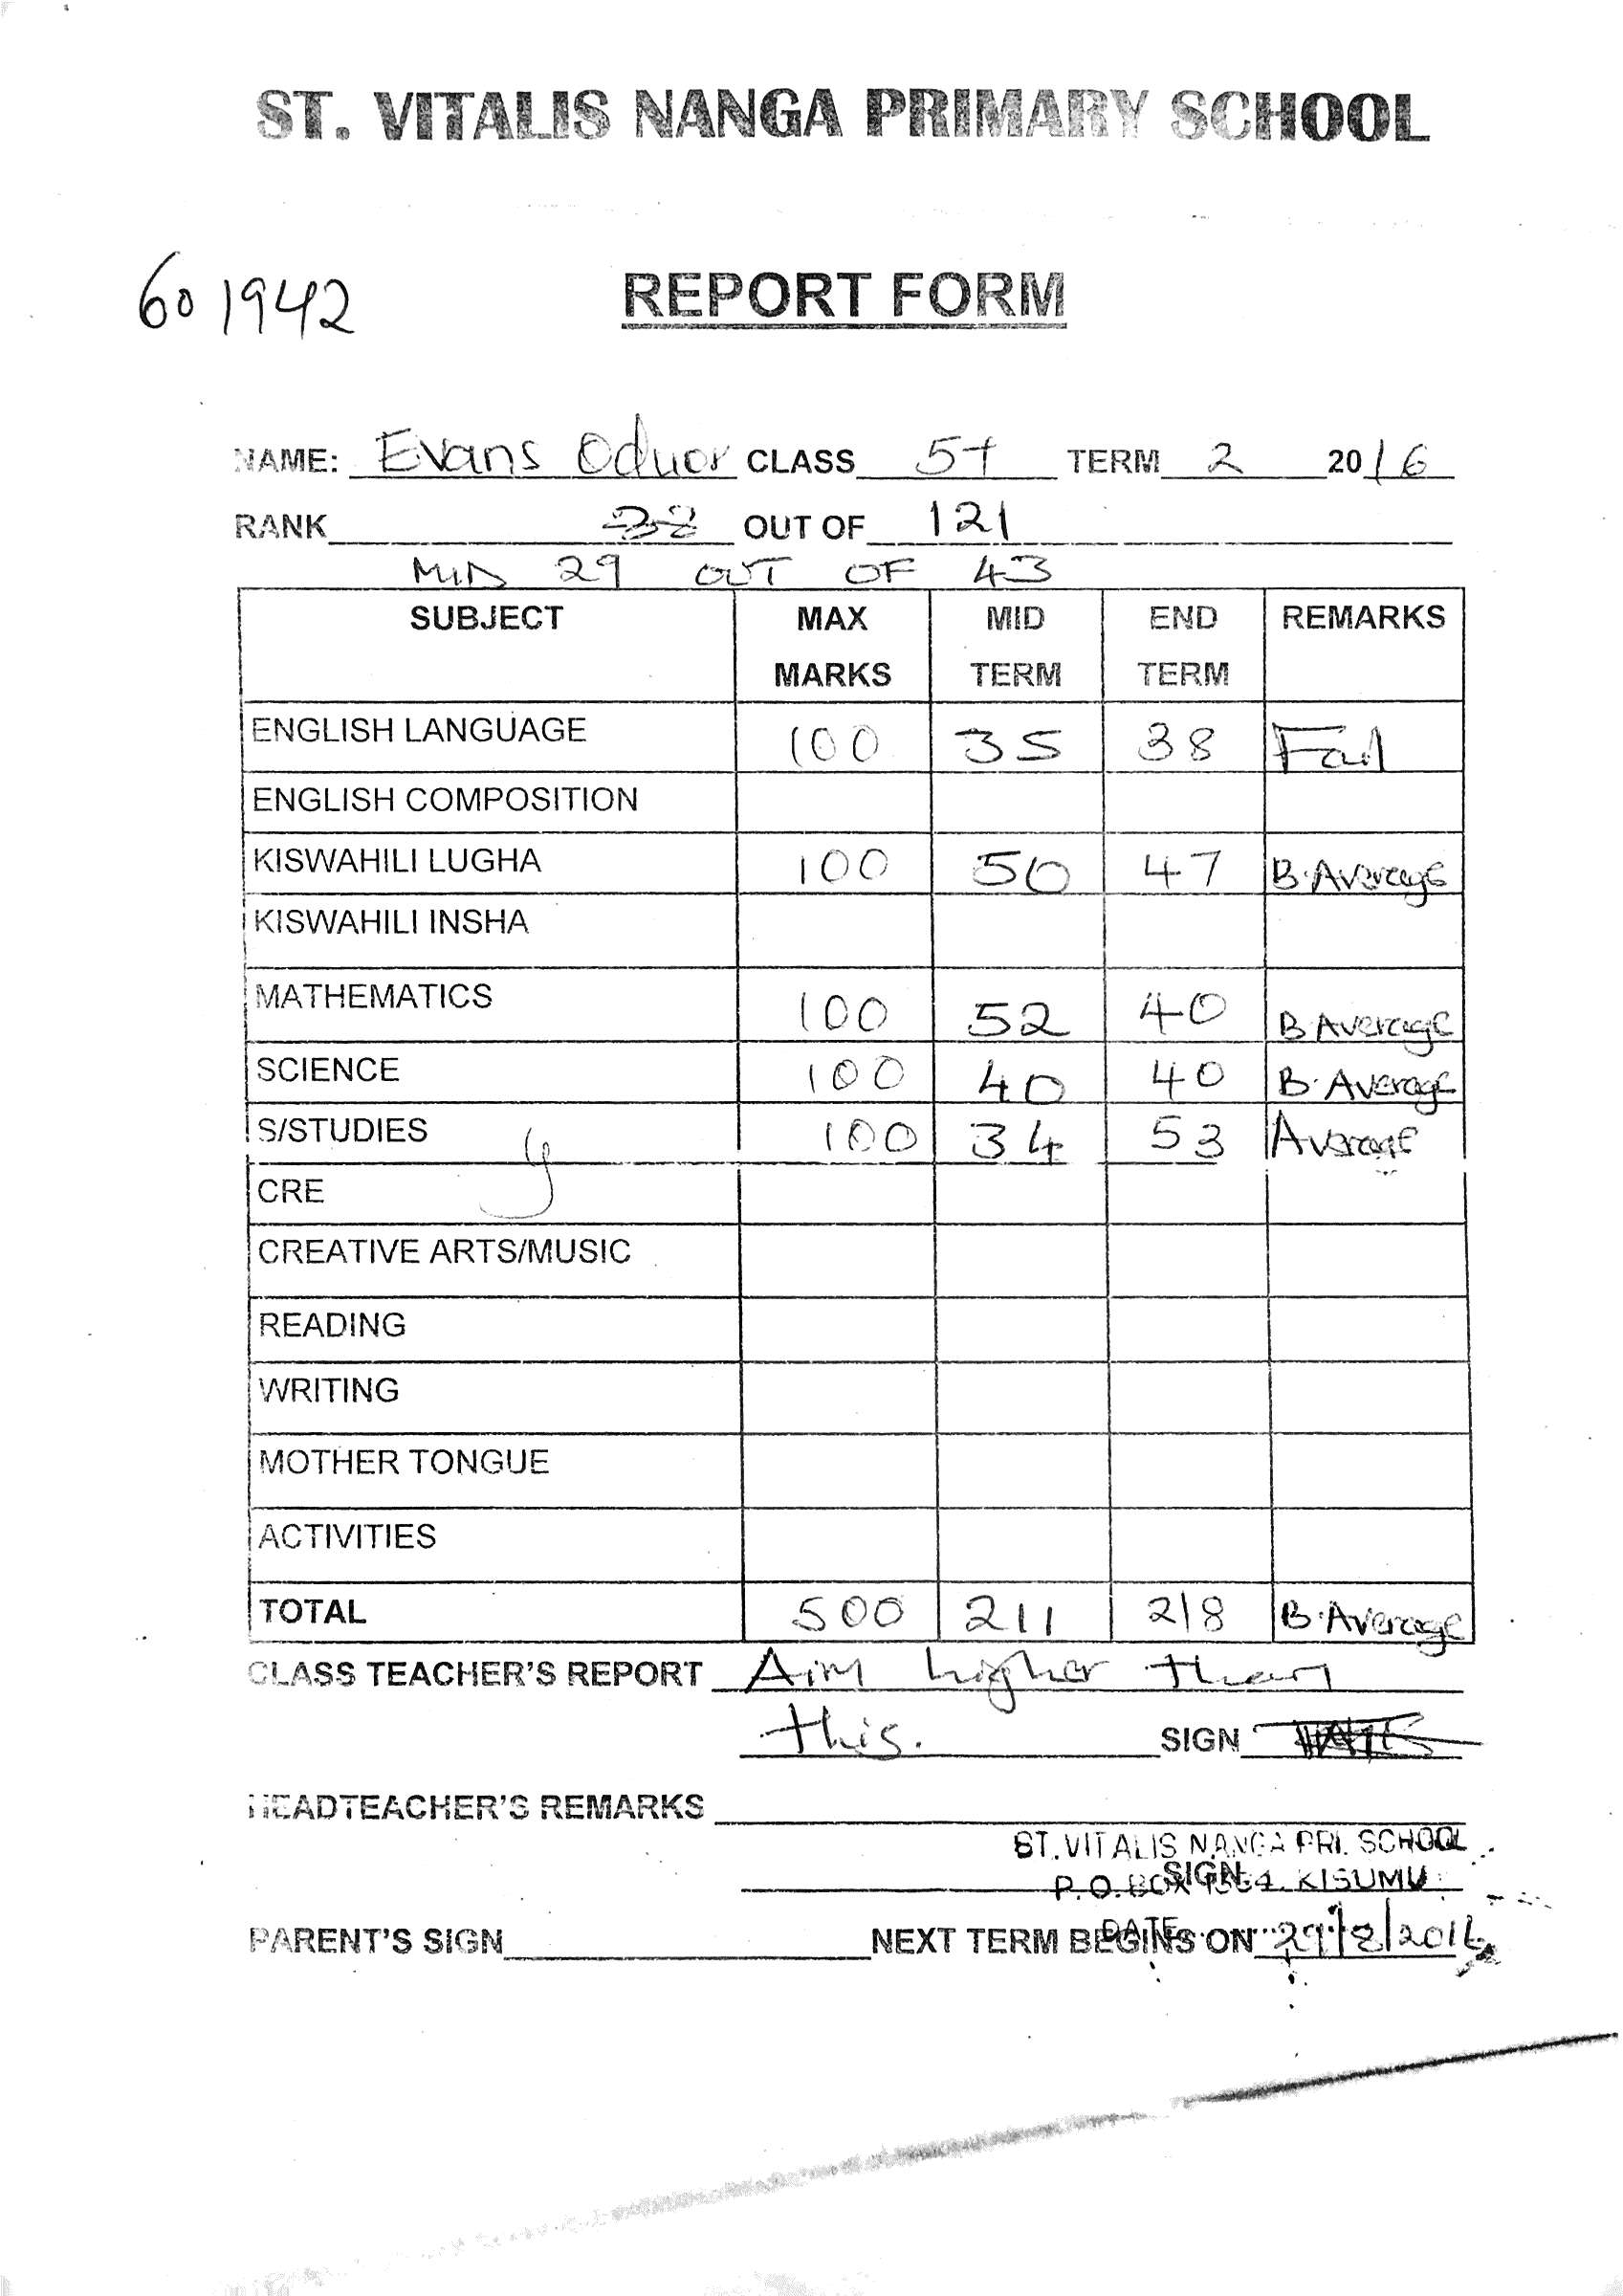 ST. VITALIS NANGA PRIMARY SCHOOL
601942
REPORT FORM
NAME: Evans Oduor CLASS 5+ TERM 2 2016
RANK OUT OF 121
MID 29 OUT OF 43
SUBJECT MAX MARKS MID TERM END TERM REMARKS
ENGLISH LANGUAGE 100 35 38 Fail
ENGLISH COMPOSITION
KISWAHILI LUGHA 100 50 47 B.Average
KISWAHILI INSHA
MATHEMATICS 100 52 40 B Average
SCIENCE 100 40 40 B.Average
S/STUDIES 100 34 53 Average
CRE
CREATIVE ARTS/MUSIC
READING
WRITING
MOTHER TONGUE
ACTIVITIES
TOTAL 500 211 218 B.Average
CLASS TEACHER'S REPORT Aim higher than
this. SIGN
HEADTEACHER'S REMARKS
ST. VITALIS NANGA PRI. SCHOOL
SIGN
P.O. BOX KISUMU
DATE
PARENT'S SIGN NEXT TERM BEGINS ON 29/8/2016